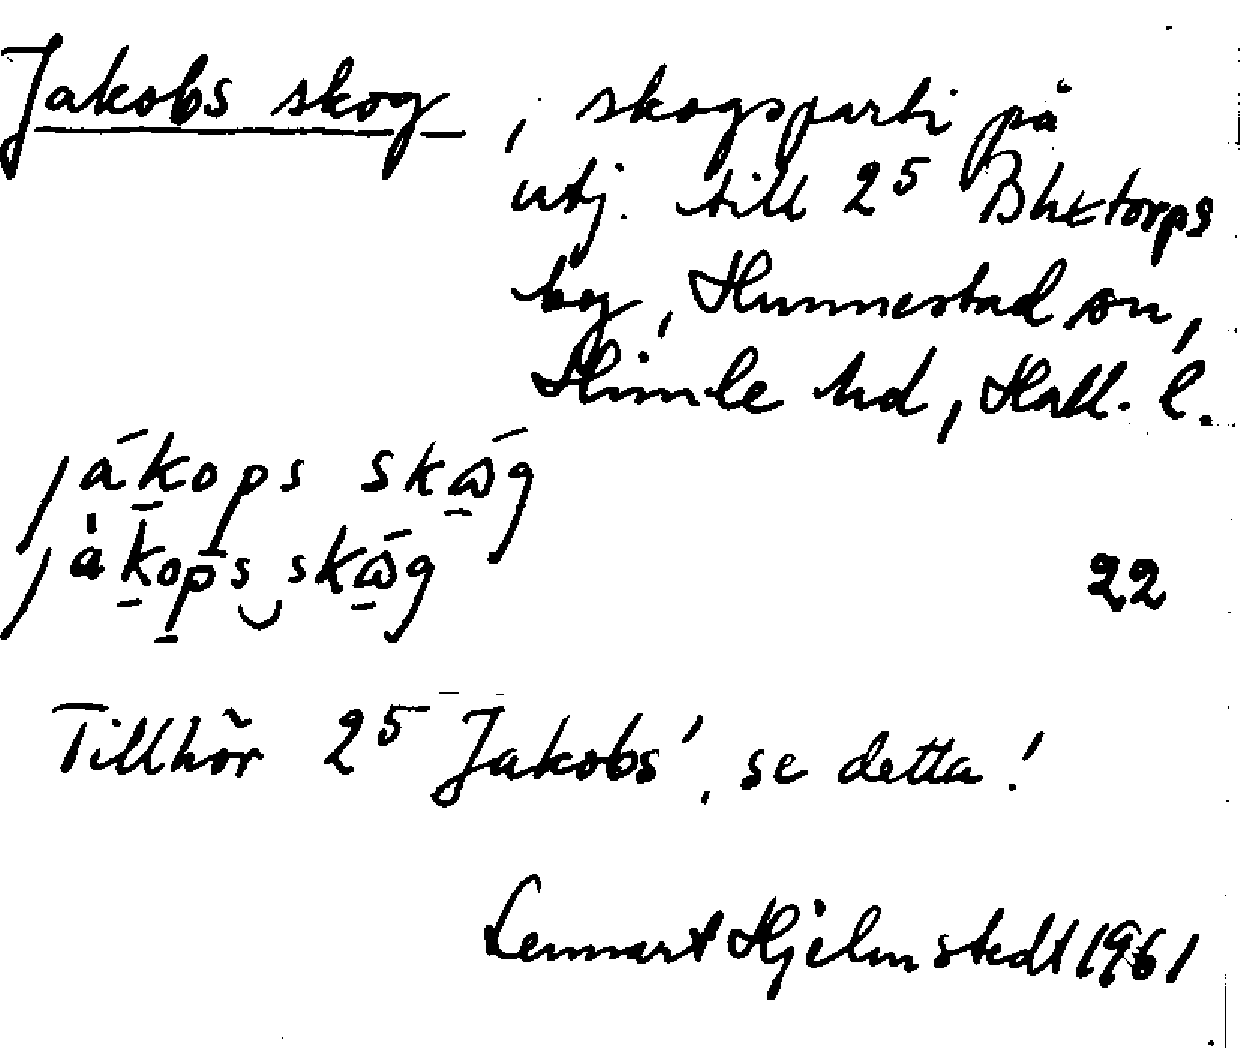 Jakobs skog, skogsparti på
utj. till 2⁵
by, Hunnestad sn,
Himle hd, Hall. l.
jákops skå̄g
jàkops‿skå̄g
22
Tillhör 2⁵ Jakobs', se detta!
Lennart Hjelmstedt 1961